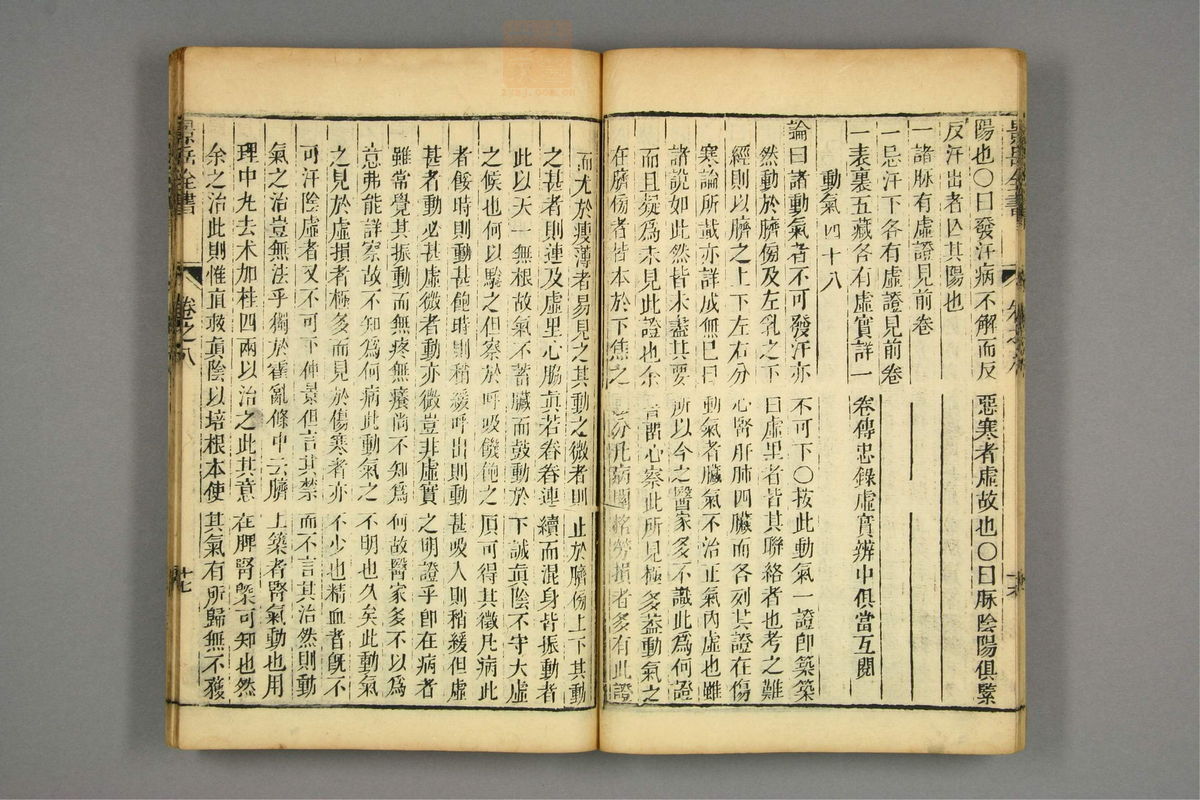 陽也〇曰發汗病不解而反惡寒者虛故也〇曰脉陰陽俱緊
反汗出者亡其陽也
一諸脉有虛證見前卷
一忌汗下各有虛證見前卷
一表裏五藏各有虛實詳一卷傳忠錄虛實辨中俱當互閱
動氣四十八
論曰諸動氣者不可發汗亦不可下〇按此動氣一證卽築築
然動於臍傍及左乳之下曰虛里者皆其聯絡者也考之難
經則以臍之上下左右分心腎肝肺四臟而各列其證在傷
寒論所載亦詳成無已曰動氣者臟氣不治正氣內虛也雖
諸說如此然皆未盡其要所以今之醫家多不識此爲何證
而且疑爲未見此證也余言留心察此所見極多葢動氣之
在臍傍者皆本於下焦之
分凡病關格勞損者多有此證
而尤於瘦薄者易見之其動之微者則止於臍傍上下其動
之甚者則連及虛里心脇眞若舂舂連續而混身皆振動者
此以天一無根故氣不蓄臟而鼓動於下誠眞陰不守大虛
之候也何以驗之但察於呼吸饑飽之頃可得其徵凡病此
者餒時則動甚飽時則稍緩呼出則動甚吸入則稍緩但虛
甚者動必甚虛微者動亦微豈非虛實之明證乎卽在病者
雖常覺其振動而無疼無癢尚不知爲何故醫家多不以爲
意弗能詳察故不知爲何病此動氣之不明也久矣此動氣
之見於虛損者極多而見於傷寒者亦不少也精血者旣不
可汗陰虛者又不可下仲景但言其禁而不言其治然則動
氣之治豈無法乎獨於霍亂條中云臍上築者腎氣動也用
理中丸去术加桂四兩以治之此其意在脾腎槩可知也然
余之治此則惟直救眞陰以培根本使其氣有所歸無不獲
景岳全書
卷之八
廿七